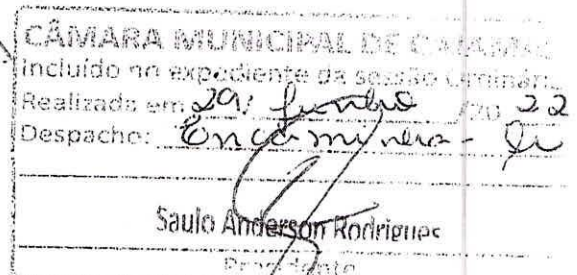 CÂMARA MUNICIPAL DE
Incluído no expediente da sessão
Realizada em 29/ junho /20 22
Despacho: Encaminha-se
Saulo Anderson Rodrigues
Presidente